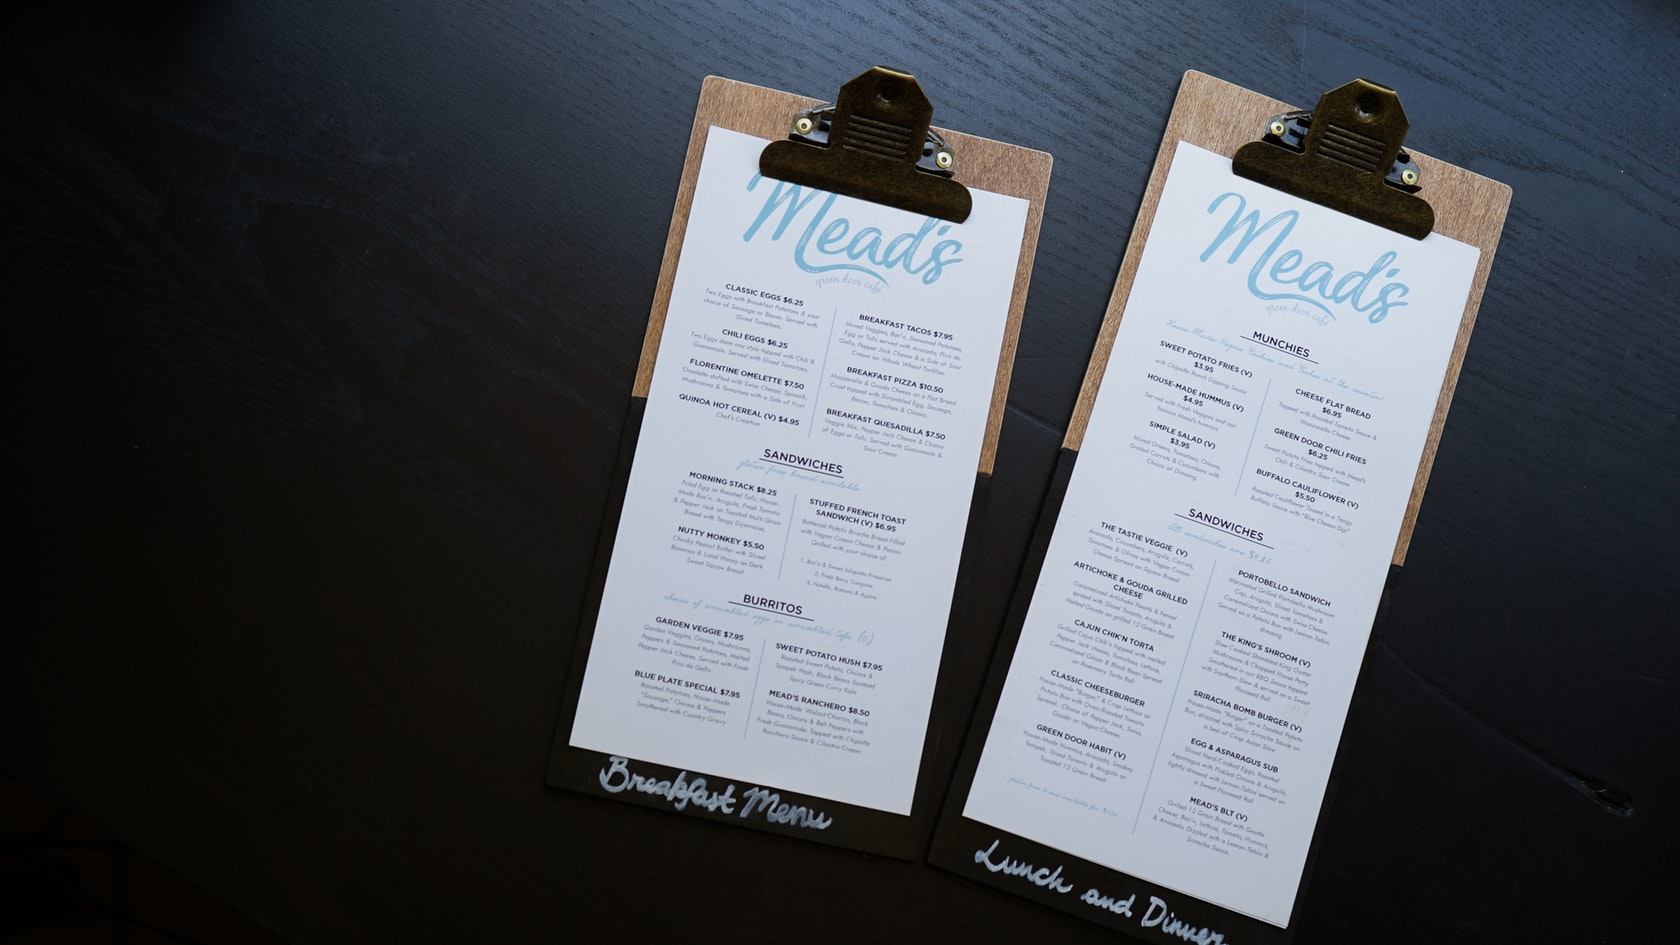 Mead's
green door cafe
CLASSIC EGGS $6.25
Two Eggs with Breakfast Potatoes & your
choice of Sausage or Bacon. Served with
Sliced Tomatoes.
CHILI EGGS $6.25
Two Eggs done any style topped with Chili &
Guacamole. Served with Sliced Tomatoes.
FLORENTINE OMELETTE $7.50
Omelette stuffed with Swiss Cheese, Spinach,
Mushrooms & Tomatoes with a Side of Fruit
QUINOA HOT CEREAL (V) $4.95
Chef's Creation
BREAKFAST TACOS $7.95
Mixed Veggies, Bac'n, Seasoned Potatoes,
Egg or Tofu served with Avocado, Pico de
Gallo, Pepper Jack Cheese & a Side of Sour
Cream on Whole Wheat Tortillas.
BREAKFAST PIZZA $10.50
Mozzarella & Gouda Cheese on a Flat Bread
Crust topped with Scrambled Egg, Sausage,
Bacon, Tomatoes & Onions.
BREAKFAST QUESADILLA $7.50
Veggie Mix, Pepper Jack Cheese & Choice
of Eggs or Tofu. Served with Guacamole &
Sour Cream
SANDWICHES
gluten free bread available
MORNING STACK $8.25
Fried Egg or Roasted Tofu, House-
Made Bac'n, Arugula, Fresh Tomato
& Pepper Jack on Toasted Multi Grain
Bread with Tangy Dijonnaise.
NUTTY MONKEY $5.50
Chunky Peanut Butter with Sliced
Bananas & Local Honey on Dark
Sweet Squaw Bread
STUFFED FRENCH TOAST
SANDWICH (V) $6.95
Battered Potato Brioche Bread Filled
with Vegan Cream Cheese & Panini-
Grilled with your choice of:
1. Bac'n & Sweet Jalapeño Preserves
2. Fresh Berry Compote
3. Nutella, Banana & Agave
BURRITOS
choice of scrambled eggs or scrambled tofu (V)
GARDEN VEGGIE $7.95
Garden Veggies, Onions, Mushrooms,
Peppers & Seasoned Potatoes, Melted
Pepper Jack Cheese. Served with Fresh
Pico de Gallo
BLUE PLATE SPECIAL $7.95
Roasted Potatoes, House-Made
"Sausage," Onions & Peppers
Smothered with Country Gravy
SWEET POTATO HUSH $7.95
Roasted Sweet Potato, Onions &
Tempeh Hash, Black Beans Sautéed
Spicy Green Curry Kale
MEAD'S RANCHERO $8.50
House-Made Walnut Chorizo, Black
Beans, Onions & Bell Peppers with
Fresh Guacamole. Topped with Chipotle
Ranchero Sauce & Cilantro Cream
Breakfast Menu
Mead's
green door cafe
MUNCHIES
House Made Vegan Cookies and Cakes at the counter!
SWEET POTATO FRIES (V)
$3.95
with Chipotle Ranch Dipping Sauce
HOUSE-MADE HUMMUS (V)
$4.95
Served with Fresh Veggies and our
famous Mead's hummus
SIMPLE SALAD (V)
$3.95
Mixed Greens, Tomatoes, Onions,
Grated Carrots & Cucumbers with
Choice of Dressing
CHEESE FLAT BREAD
$6.95
Topped with Roasted Tomato Sauce &
Mozzarella Cheese
GREEN DOOR CHILI FRIES
$6.25
Sweet Potato Fries topped with Mead's
Chili & Cilantro Sour Cream
BUFFALO CAULIFLOWER (V)
$5.50
Roasted Cauliflower Tossed in a Tangy
Buffalo Sauce with "Blue Cheese Dip"
SANDWICHES
All sandwiches are $9.25
THE TASTIE VEGGIE (V)
Avocado, Cucumbers, Arugula, Carrots,
Tomatoes & Olives with Vegan Cream
Cheese Spread on Squaw Bread
ARTICHOKE & GOUDA GRILLED
CHEESE
Caramelized Artichoke Hearts & Fennel
spread with Sliced Tomato, Arugula &
Melted Gouda on grilled 12 Grain Bread
CAJUN CHIK'N TORTA
Grilled Cajun Chik'n topped with melted
Pepper Jack cheese, Tomatoes, Lettuce,
Caramelized Onion & Black Bean Spread
on Rosemary Torta Roll
CLASSIC CHEESEBURGER
House-Made "Burger" & Crisp Lettuce on
Potato Bun with Oven-Roasted Tomato
Spread. Choice of Pepper Jack, Swiss,
Gouda or Vegan Cheese.
GREEN DOOR HABIT (V)
House-Made Hummus, Avocado, Smokey
Tempeh, Sliced Tomato & Arugula on
Toasted 12 Grain Bread
PORTOBELLO SANDWICH
Marinated Grilled Portobello Mushroom
Cap, Arugula, Sliced Tomato,
Caramelized Onions with Swiss Cheese.
Served on a Potato Bun with Lemon-Tahini
dressing
THE KING'S SHROOM (V)
Slow Cooked Shredded King Oyster
Mushrooms & Chopped House Patty
Smothered in our BBQ Sauce topped
with Southern Slaw & served on a Sweet
Flaxseed Roll
SRIRACHA BOMB BURGER (V)
House-Made "Burger" on a Toasted Potato
Bun, drizzled with Spicy Sriracha Sauce on
a bed of Crisp Asian Slaw
EGG & ASPARAGUS SUB
Sliced Hard-Cooked Eggs, Roasted
Asparagus with Pickled Onions & Arugula,
lightly dressed with Lemon-Tahini served on
a Sweet Flaxseed Roll
MEAD'S BLT (V)
Grilled 12 Grain Bread with Gouda
Cheese, Bac'n, Lettuce, Tomato, Hummus,
& Avocado, Dizzled with a Lemon-Tahini &
Sriracha Sauce.
gluten free bread available for
Lunch and Dinner